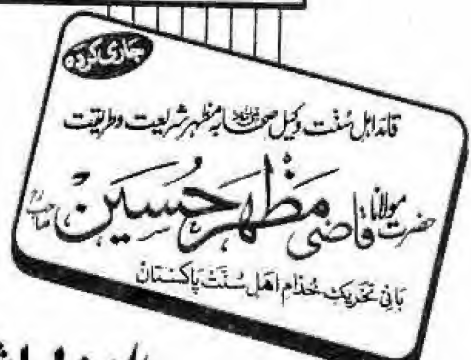 جاری کردہ
قائد اہل سُنّت وکیل صحابہؓ مظہر شریعت و طریقت
حضرت مولانا قاضی مظہر حُسین صاحبؒ
بانی تحریک خُدام اھل سُنّت پاکستان